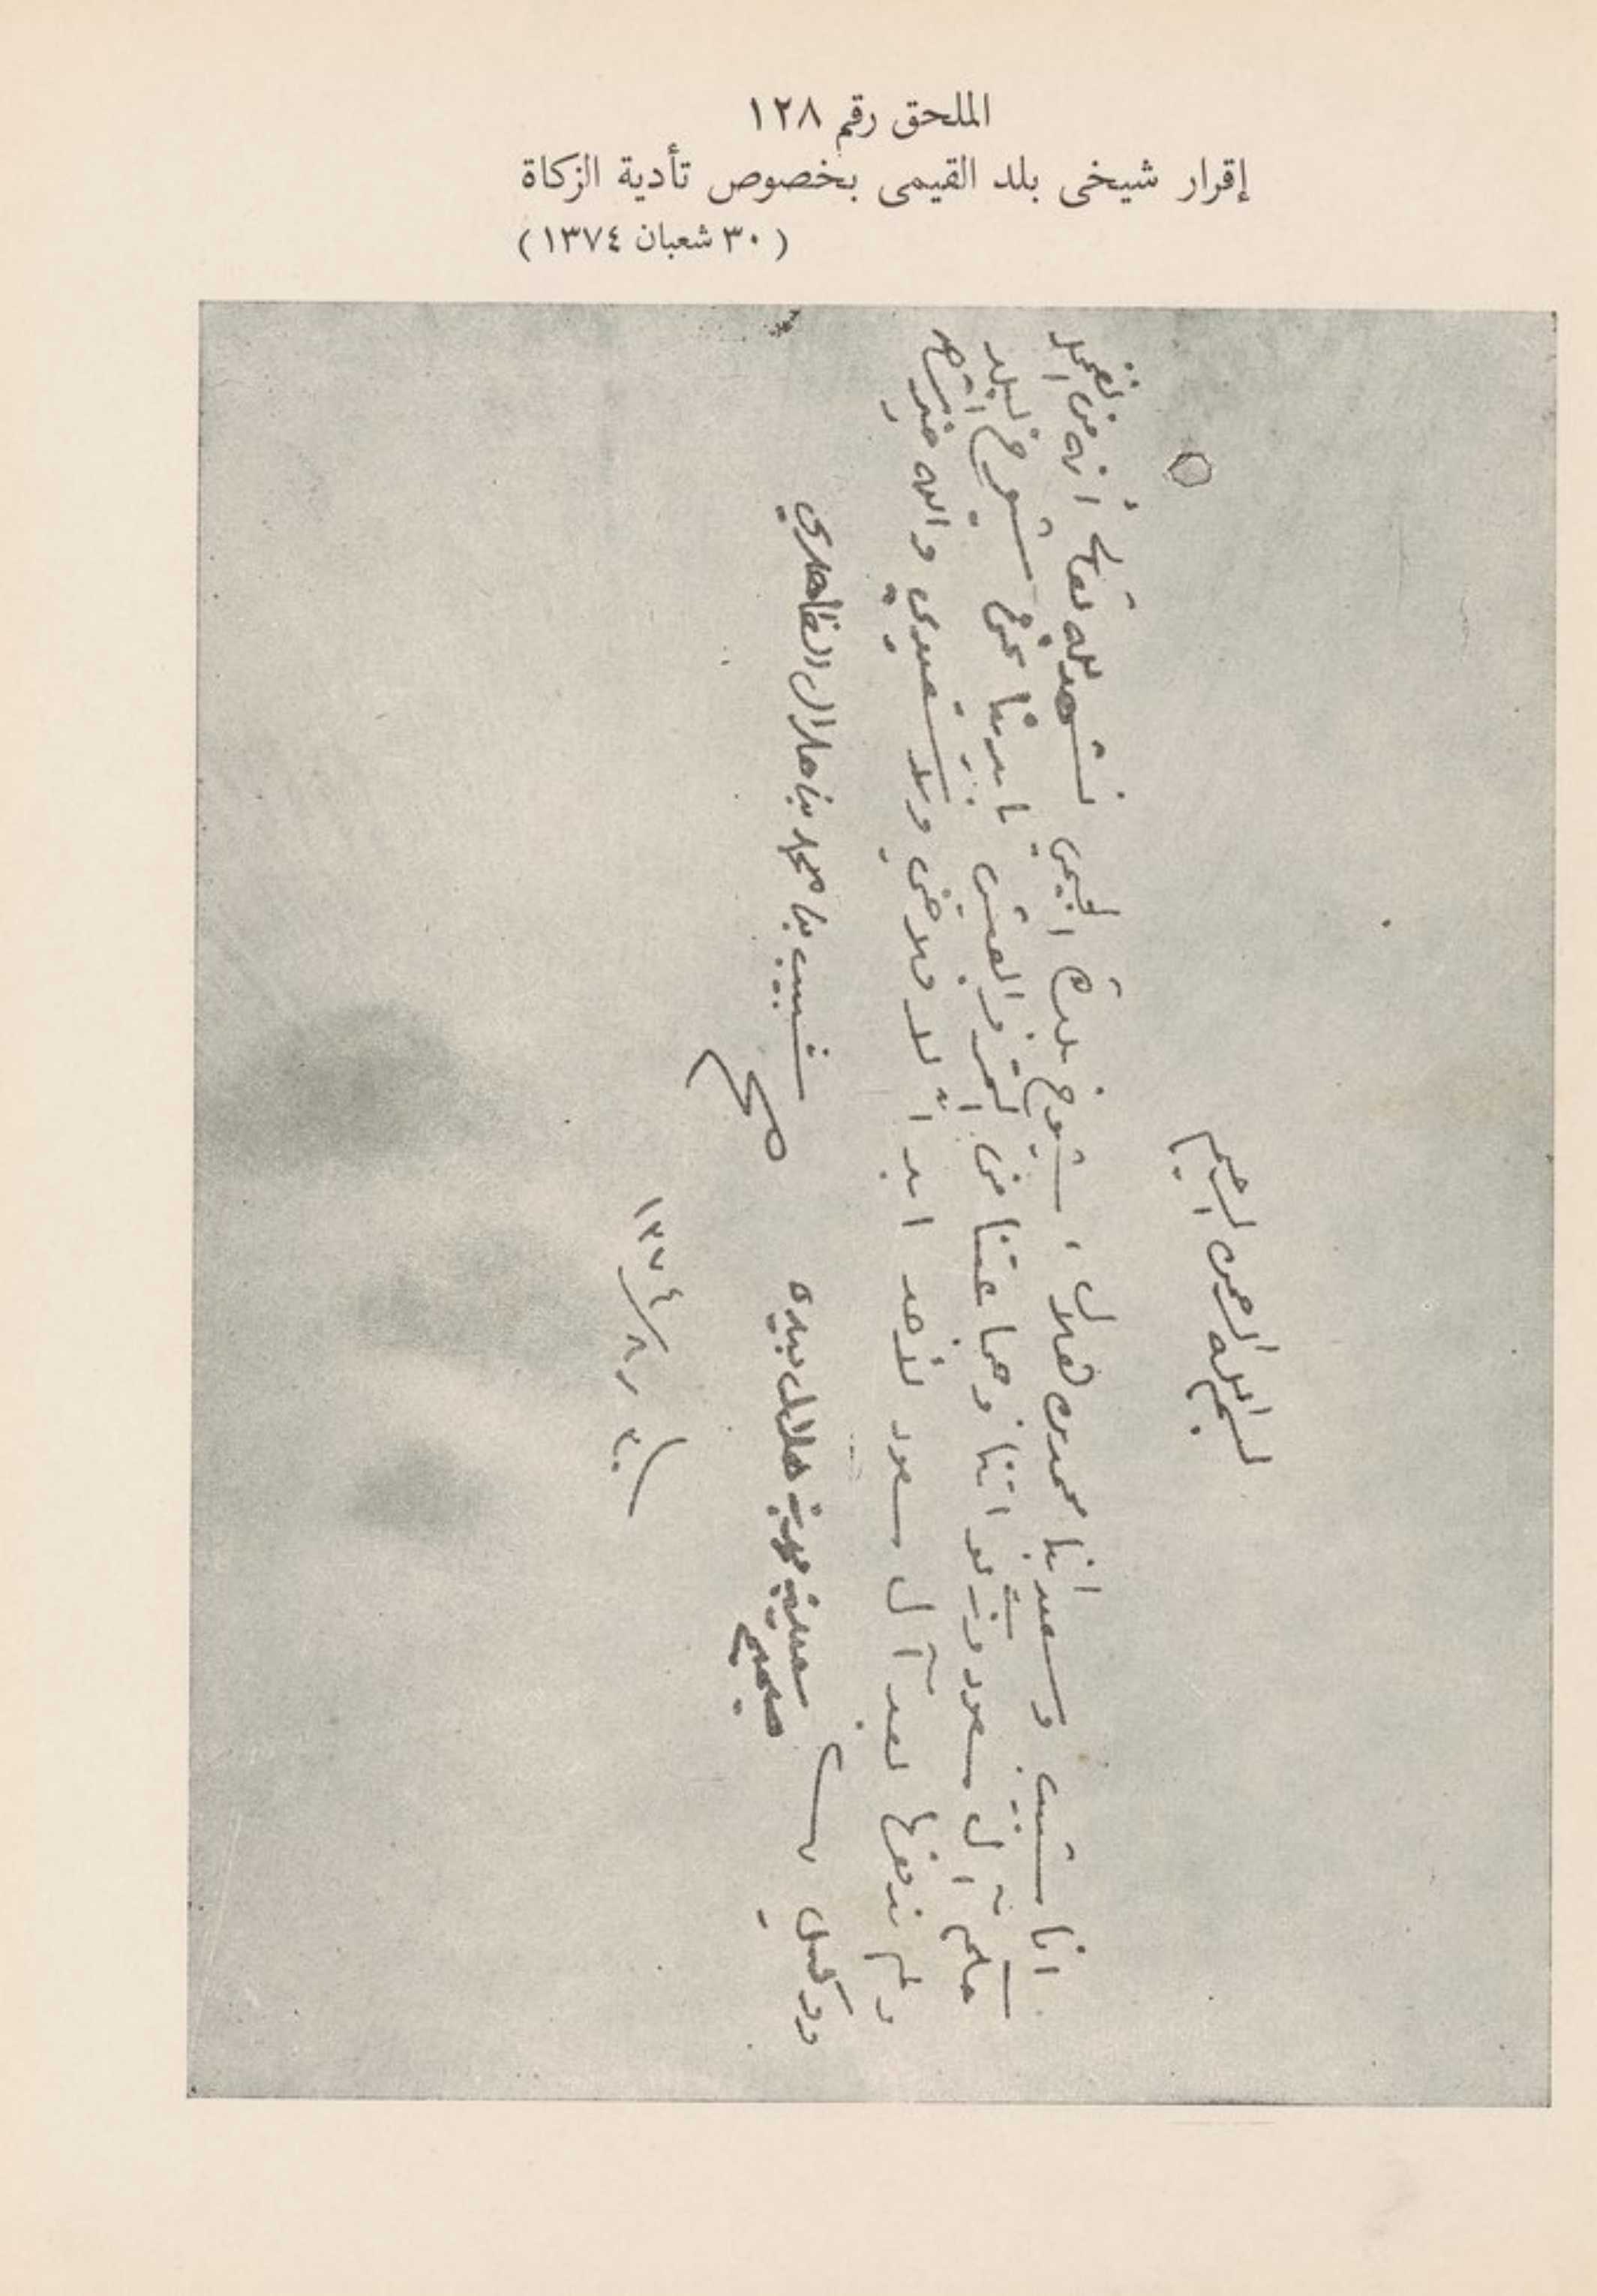 الملحق رقم ١٢٨
إقرار شيخى بلد القيمى بخصوص تأدية الزكاة
(٣٠ شعبان ١٣٧٤)
بسم الله الرحمن الرحيم
انا شبيب وسعيد ابنا محمد بن هلال، شيوخ بلدت الجيمي نشهد لله تعالى أنه من
حكم آل سعود وزكواتنا وجماعتنا من التمر والعيش بيدنا نحن شيوخ البلد
ولم ندفعها لعبد آل سعود لأحد ابداً لا فلاحي ولا سعودي والله خير
شبيب بنا محمد بنا هلال الظاهري
صح
سعيد بن محمد بن هلال بيده
صحيح
٣٠ / ٨ / ١٣٧٤